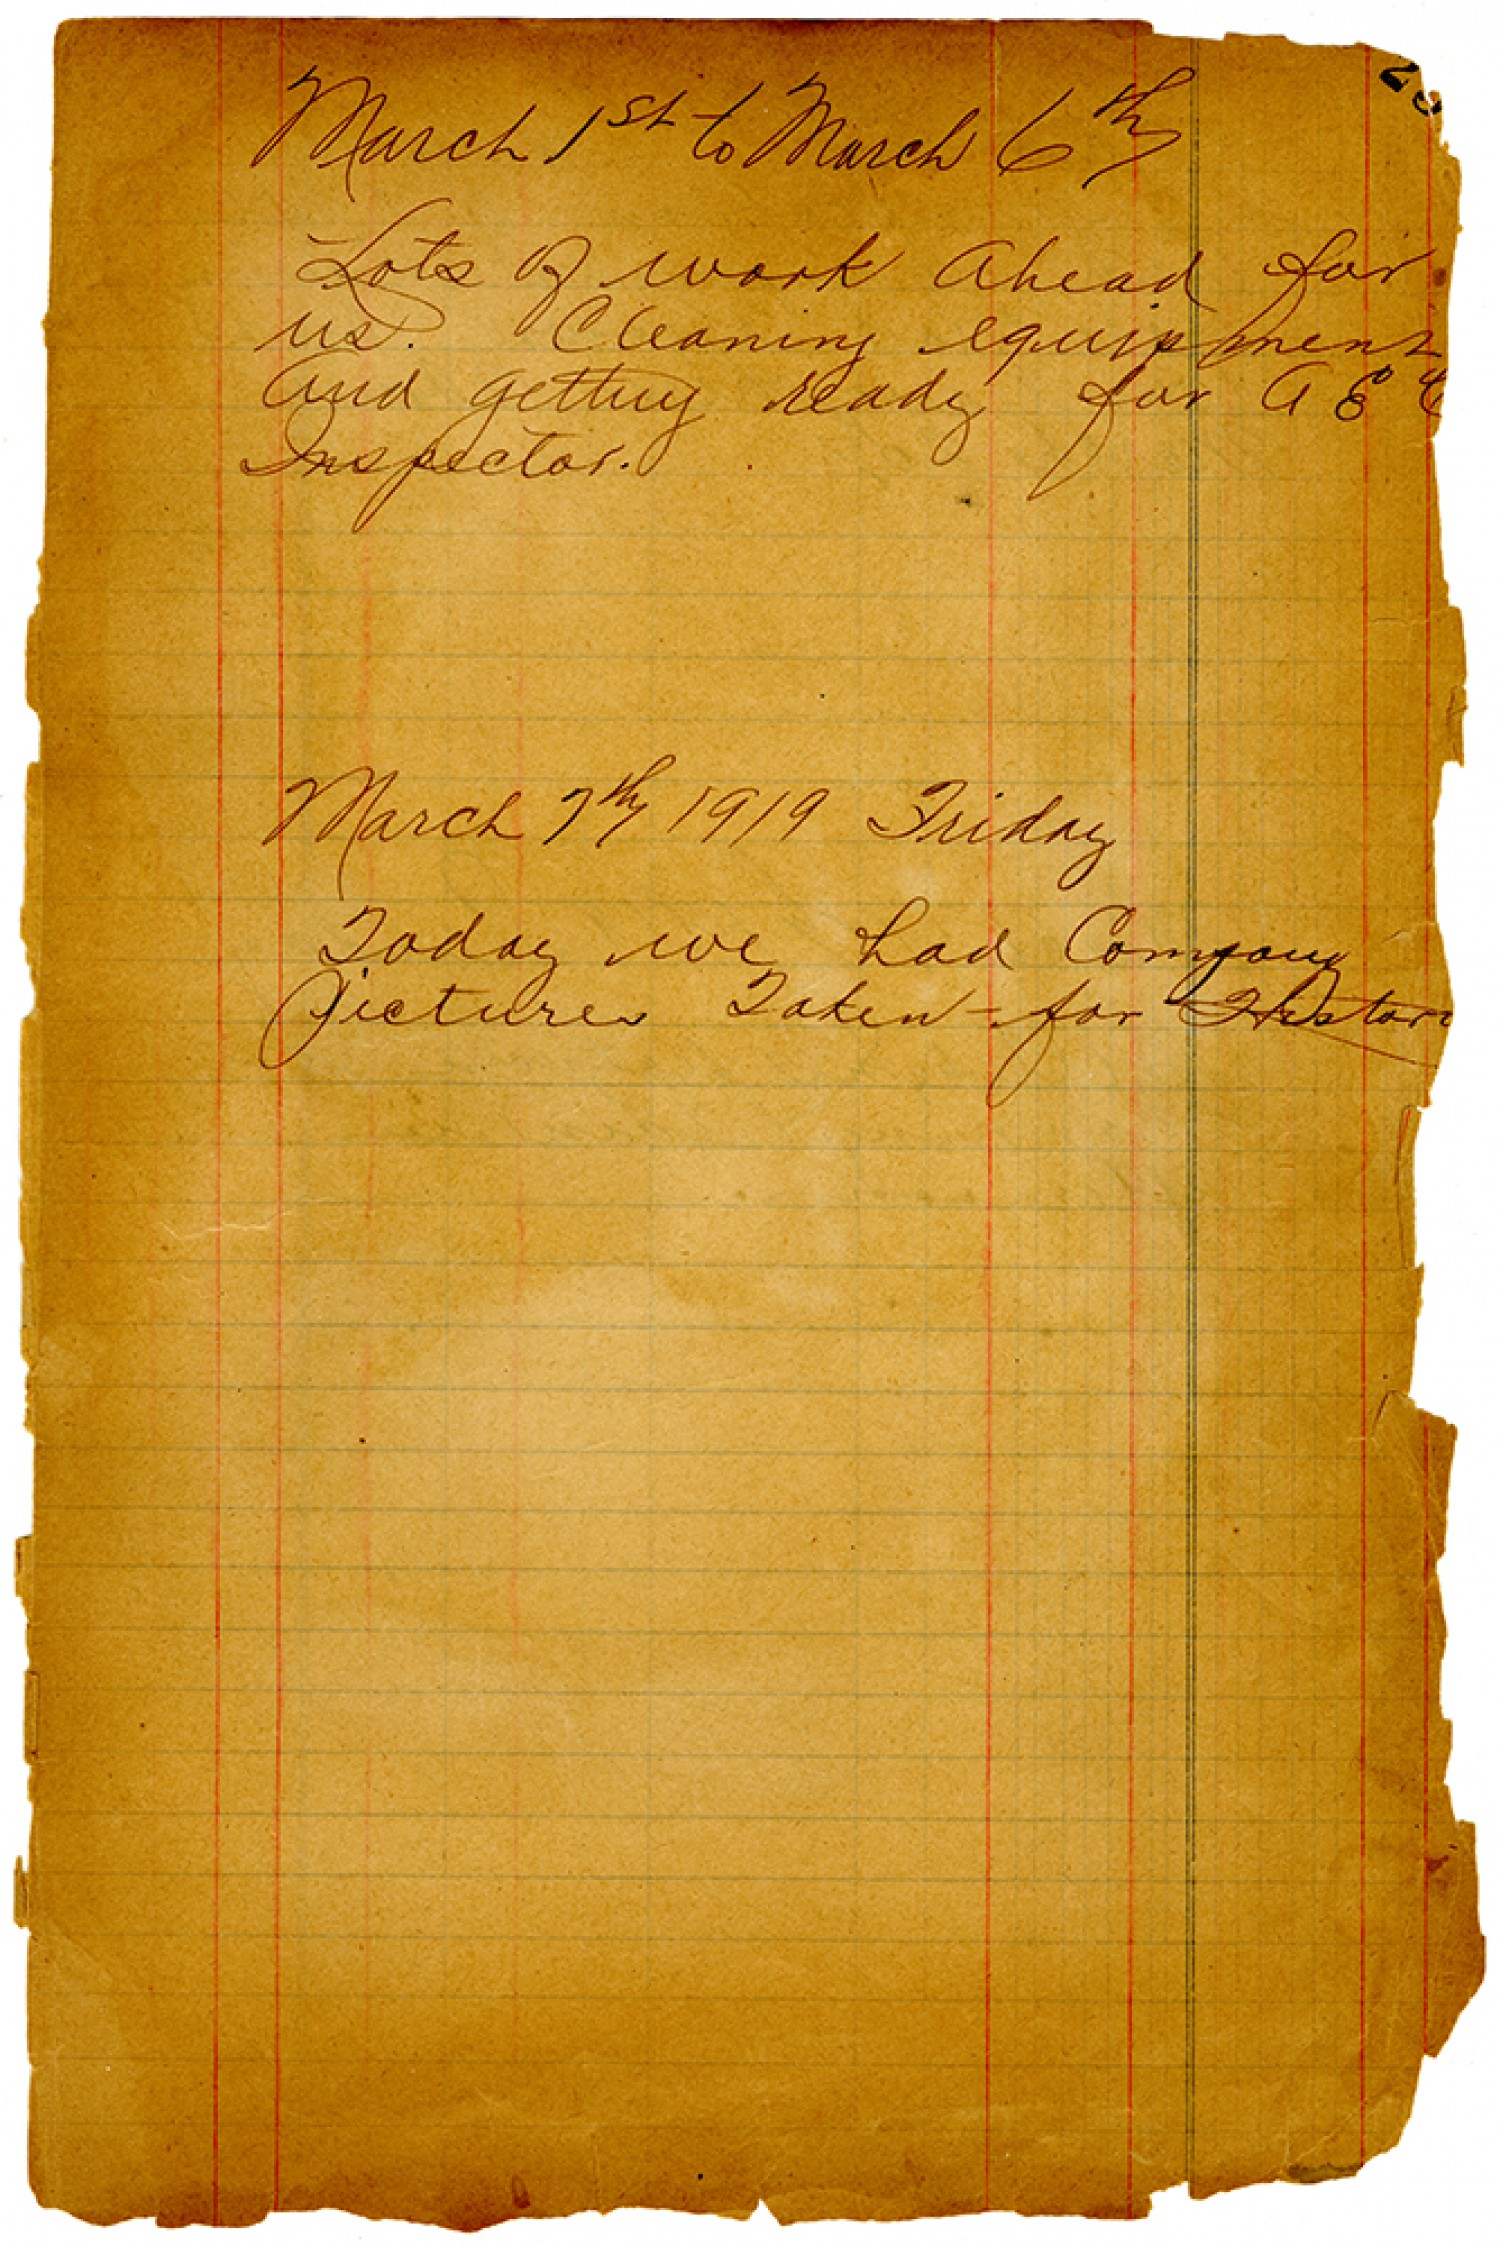 29
March 1st to March 6th
Lots of work Ahead for
us. Cleaning equipment
and getting ready for A E C
Inspector.
March 7th 1919 Friday
Today we had Company
Pictures Taken - for Histor